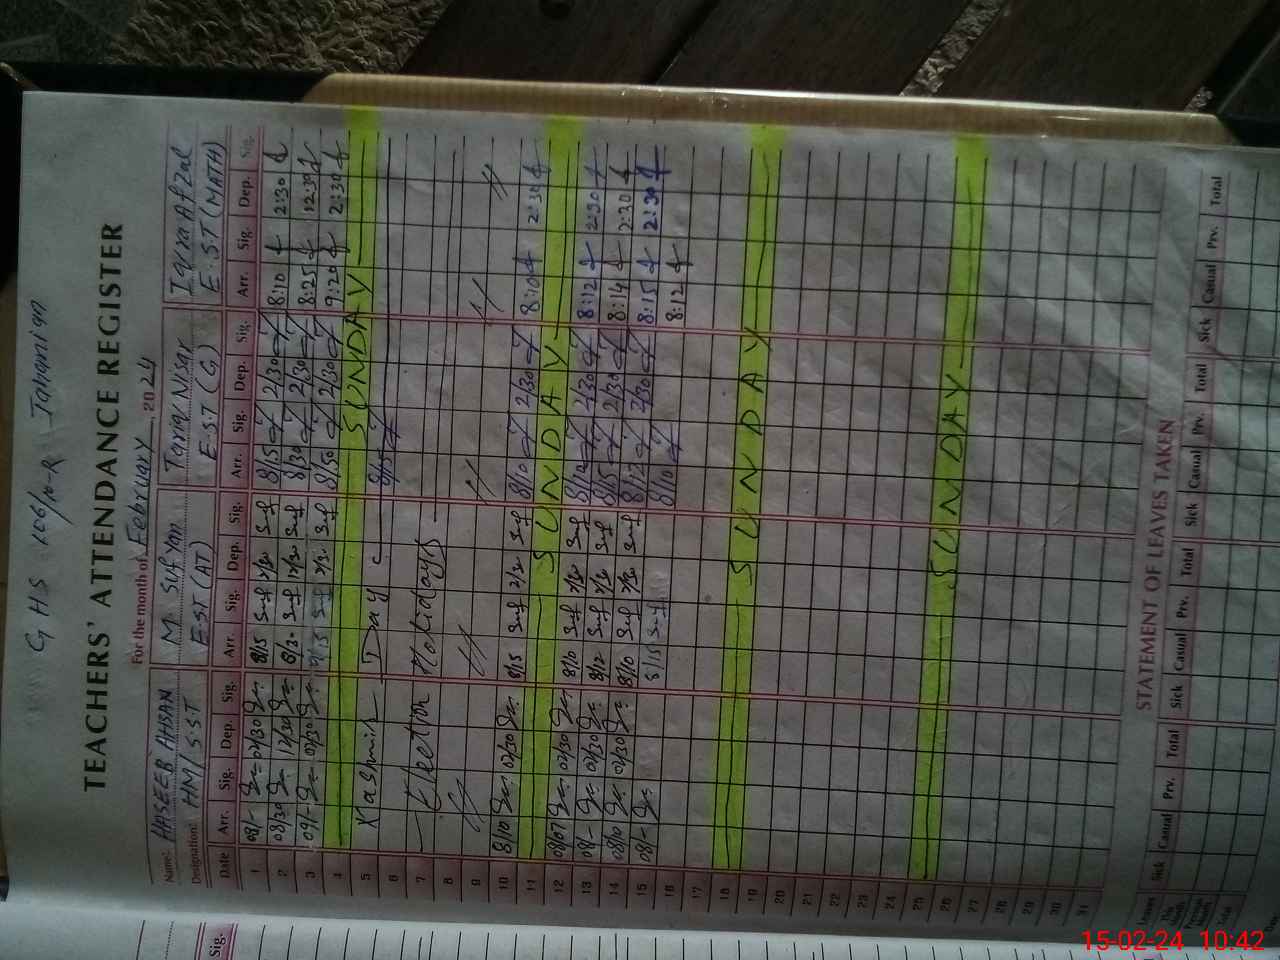 GHS 106/10-R Jahanian
TEACHERS' ATTENDANCE REGISTER
For the month of February, 2024
Name: HASEEB AHSAN M. Sufyan Tariq Nisar Iqra Afzal
Designation: HM/S.S.T E.ST (AT) E.S.T (G) E.S.T (MATH)
Date Arr. Sig. Dep. Sig. Arr. Sig. Dep. Sig. Arr. Sig. Dep. Sig. Arr. Sig. Dep. Sig.
1 08/- 02/30 8/15 2/30 8/15 2/30 8:10 2:30
2 08/30 12/30 8/30 12/30 8/30 2/30 8:25 12:30
3 09/- 02/30 9/15 2/30 8/50 2/30 9:20 2:30
4 SUNDAY
5 Kashmir Day 8/15
6
7 Election Holidays
8
9
10 8/10 02/30 8/15 2/30 8/10 2/30 8:10 2:30
11 SUNDAY
12 08/07 02/30 8/10 2/30 8/12 2/30 8:12 2:30
13 08/- 02/30 8/12 2/30 8/15 2/30 8:14 2:30
14 08/10 02/30 8/10 2/30 8/12 2/30 8:15 2:30
15 08/- 8/15 8/10 8:12
16
17
18 SUNDAY
19
20
21
22
23
24
25 SUNDAY
26
27
28
29
30
31
STATEMENT OF LEAVES TAKEN
Leaves Sick Casual Prv. Total Sick Casual Prv. Total Sick Casual Prv. Total Sick Casual Prv. Total
Total
Sig.
15-02-24 10:42